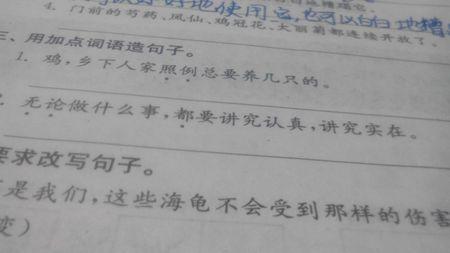 好好地使用它,也可以白白地糟
4. 门前的芍药、凤仙、鸡冠花、大丽菊都连续开放了。
三、用加点词语造句子。
1. 鸡,乡下人家照例总要养几只的。
2. 无论做什么事,都要讲究认真,讲究实在。
要求改写句子。
是我们,这些海龟不会受到那样的伤害
变)